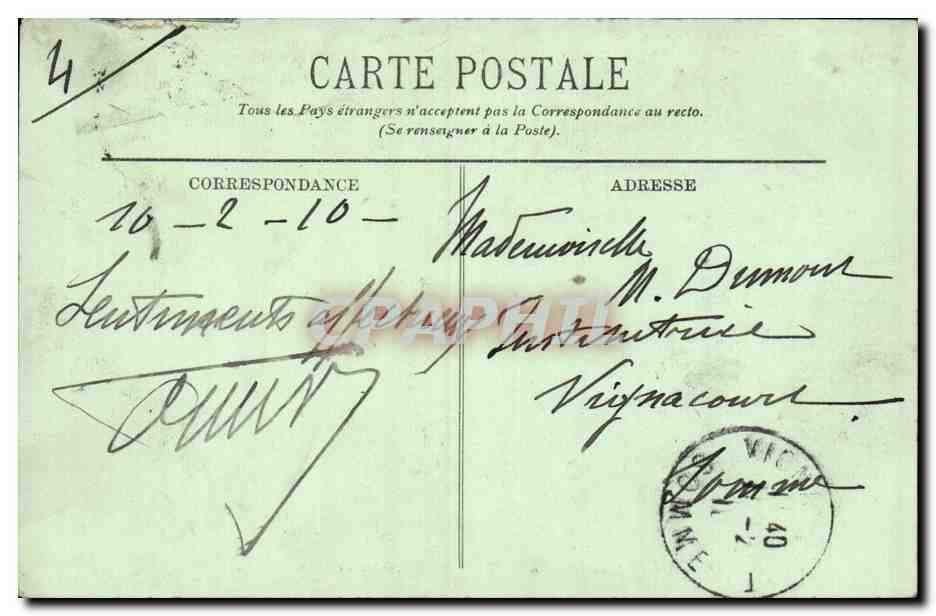 4
CARTE POSTALE
Tous les Pays étrangers n'acceptent pas la Correspondance au recto.
(Se renseigner à la Poste).
CORRESPONDANCE
10 - 2 - 10 -
Sentiments affectueux
ADRESSE
Mademoiselle
M. Dumont
Institutrice
Vignacourt
Somme
VIGN
SOMME